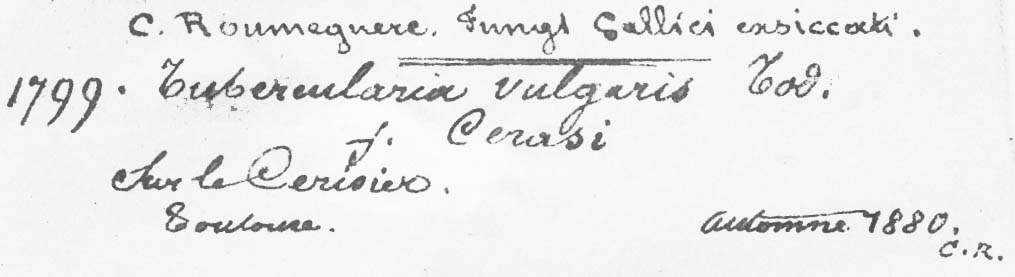 C. Roumeguere. Fungi Gallici exsiccati.
1799. Tubercularia vulgaris Tod.
f. Cerasi
Sur le Cerisier.
Toulouse.
automne 1880.
C. R.